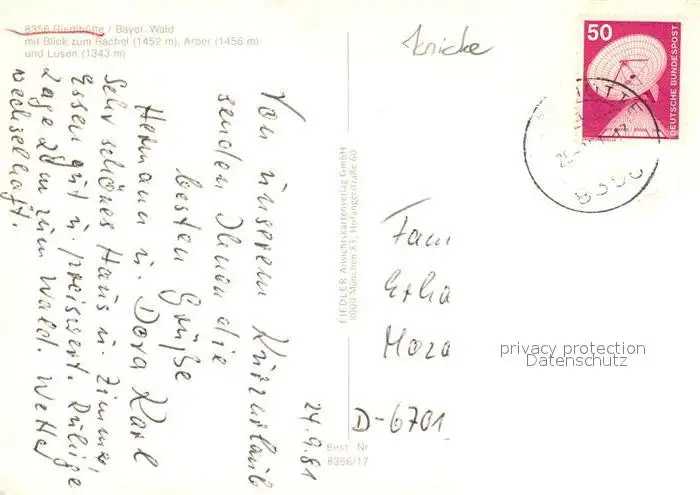 8356 Riedlhütte / Bayer. Wald
mit Blick zum Rachel (1452 m), Arber (1456 m)
und Lusen (1343 m)
knicke
50
DEUTSCHE BUNDESPOST
8356
Von unserem Kurzurlaub
senden Ihnen die
besten Grüße
Hermann u. Dora Karl
Sehr schönes Haus u. Zimmer
Essen gut u. preiswert. Ruhige
Lage 20 m zum Wald. Wetter
wechselhaft.
24.9.81
FIEDLER Ansichtskartenverlag GmbH
8000 München 83, Hofangerstraße 60
Best. Nr.
8356/17
Fam
Erha
Moza
D-6701
privacy protection
Datenschutz